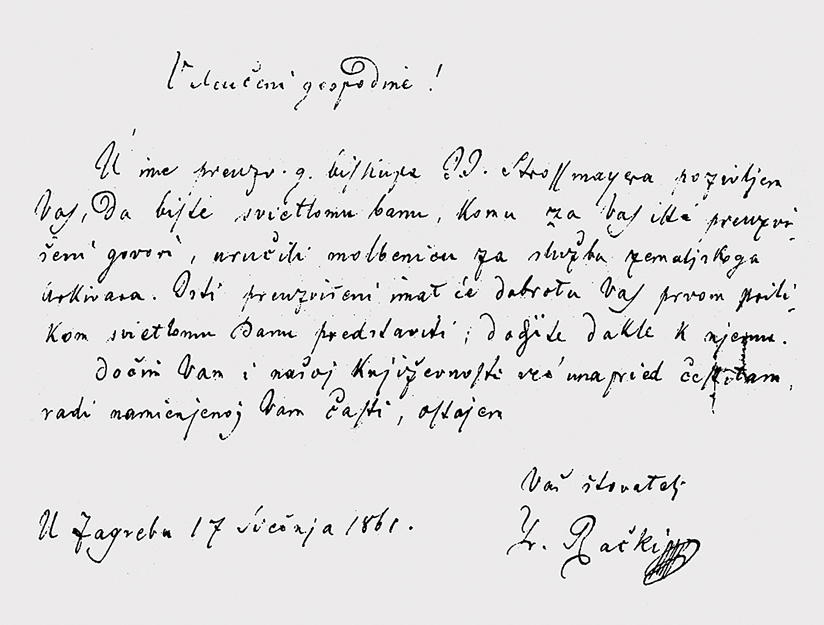 Veleučeni gospodine!
U ime preuzv. g. biskupa J. J. Strossmayera pozivljem
Vas, da biste svietlomu banu, komu za Vas isti preuzvi-
šeni govori, uručili molbenicu za službu zemaljskoga
arkivara. Isti preuzvišeni imat će dobrotu Vas prvom prili-
kom svietlomu banu predstaviti; dogjite dakle k njemu.
Dočim Vam i našoj književnosti već unapried čestitam,
radi namienjenoj Vam časti, ostajem
Vaš štovatelj
Fr. Rački
U Zagrebu 17 Siečnja 1861.